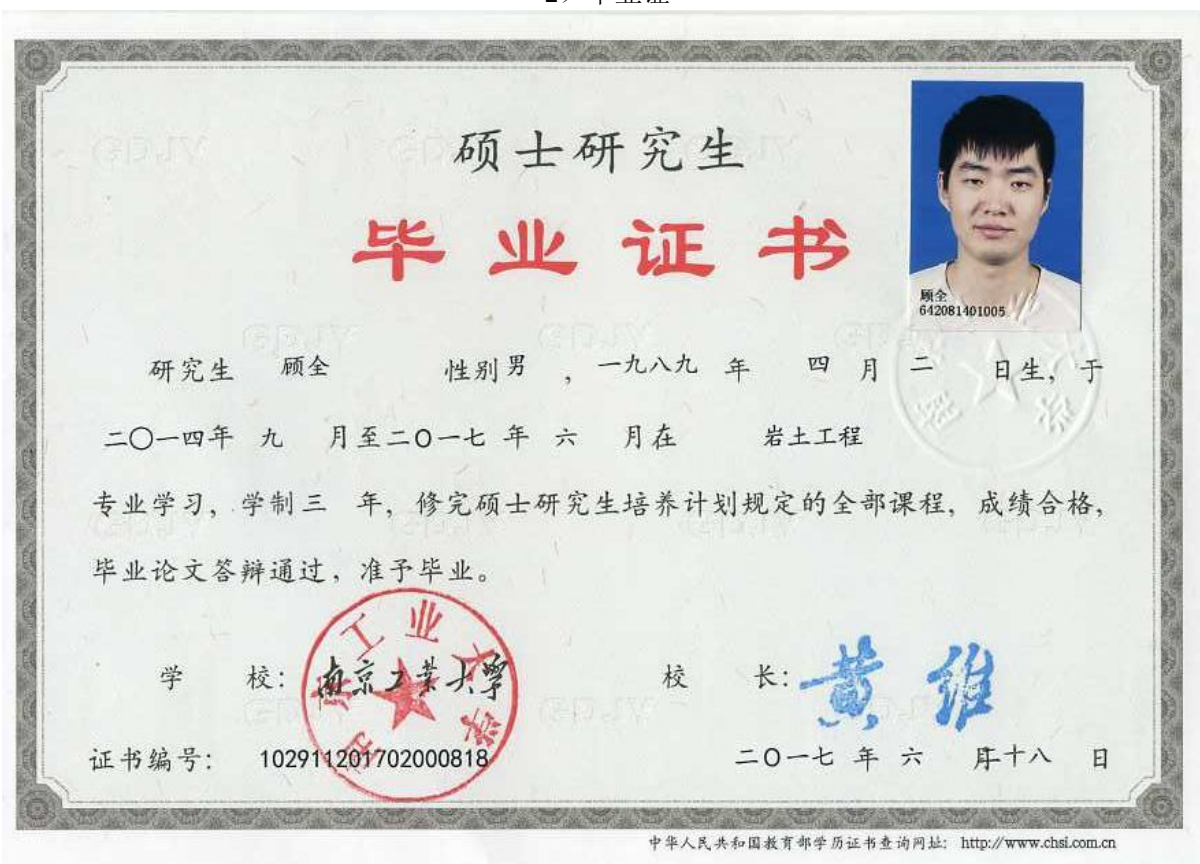 2）毕业证
硕士研究生
毕业证书
顾全
642081401005
研究生 顾全 性别 男 ，一九八九 年 四 月 二 日生，于
二〇一四年 九 月至二〇一七 年 六 月在 岩土工程
专业学习，学制 三 年，修完硕士研究生培养计划规定的全部课程，成绩合格，
毕业论文答辩通过，准予毕业。
学 校：南京工业大学
校 长：黄维
南京工业大学
证书编号： 102911201702000818
二〇一七 年 六 月十八 日
中华人民共和国教育部学历证书查询网址： http://www.chsi.com.cn